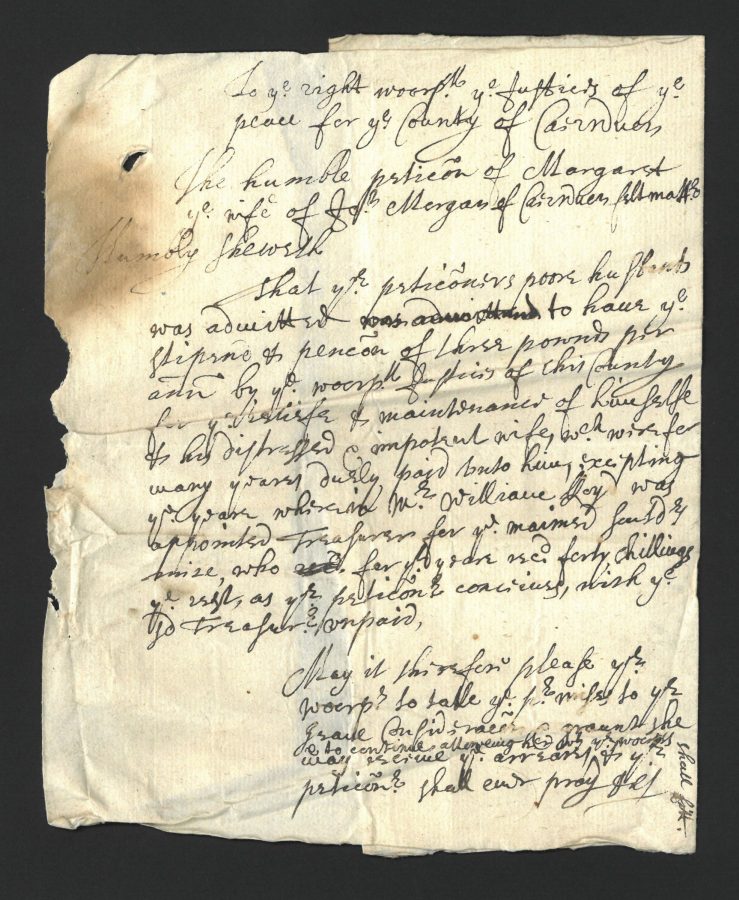 To ye right worpll ye Justices of ye
peace for ye County of Carnarvon
The humble peticõn of Margaret
ye wife of Jon Morgan of Carnarvon feltmaker
Humbly sheweth
That yor peticõners poore husband
was admitted was admitted to have ye
stipend & pencõn of three pounds per
ann by ye worpll Justices of this County
for ye reliefe & maintenance of himselfe
& his distressed & impotent wife, wch were for
many yeares duely paid unto him, excepting
ye yeare wherein Mr William was
appointed Treasurer for ye maimed
mise, who recd for yt yeare recd forty shillings
ye rest, as yor peticõnr conceives, with ye
sd Treasurer, unpaid,
May it therefore please yor
worps to take ye to yor
grave Consideracõn & graunt she
& to continue alloweing her wt yor worps
may receive ye arreares & yor
peticõnr shall ever pray &c
shall